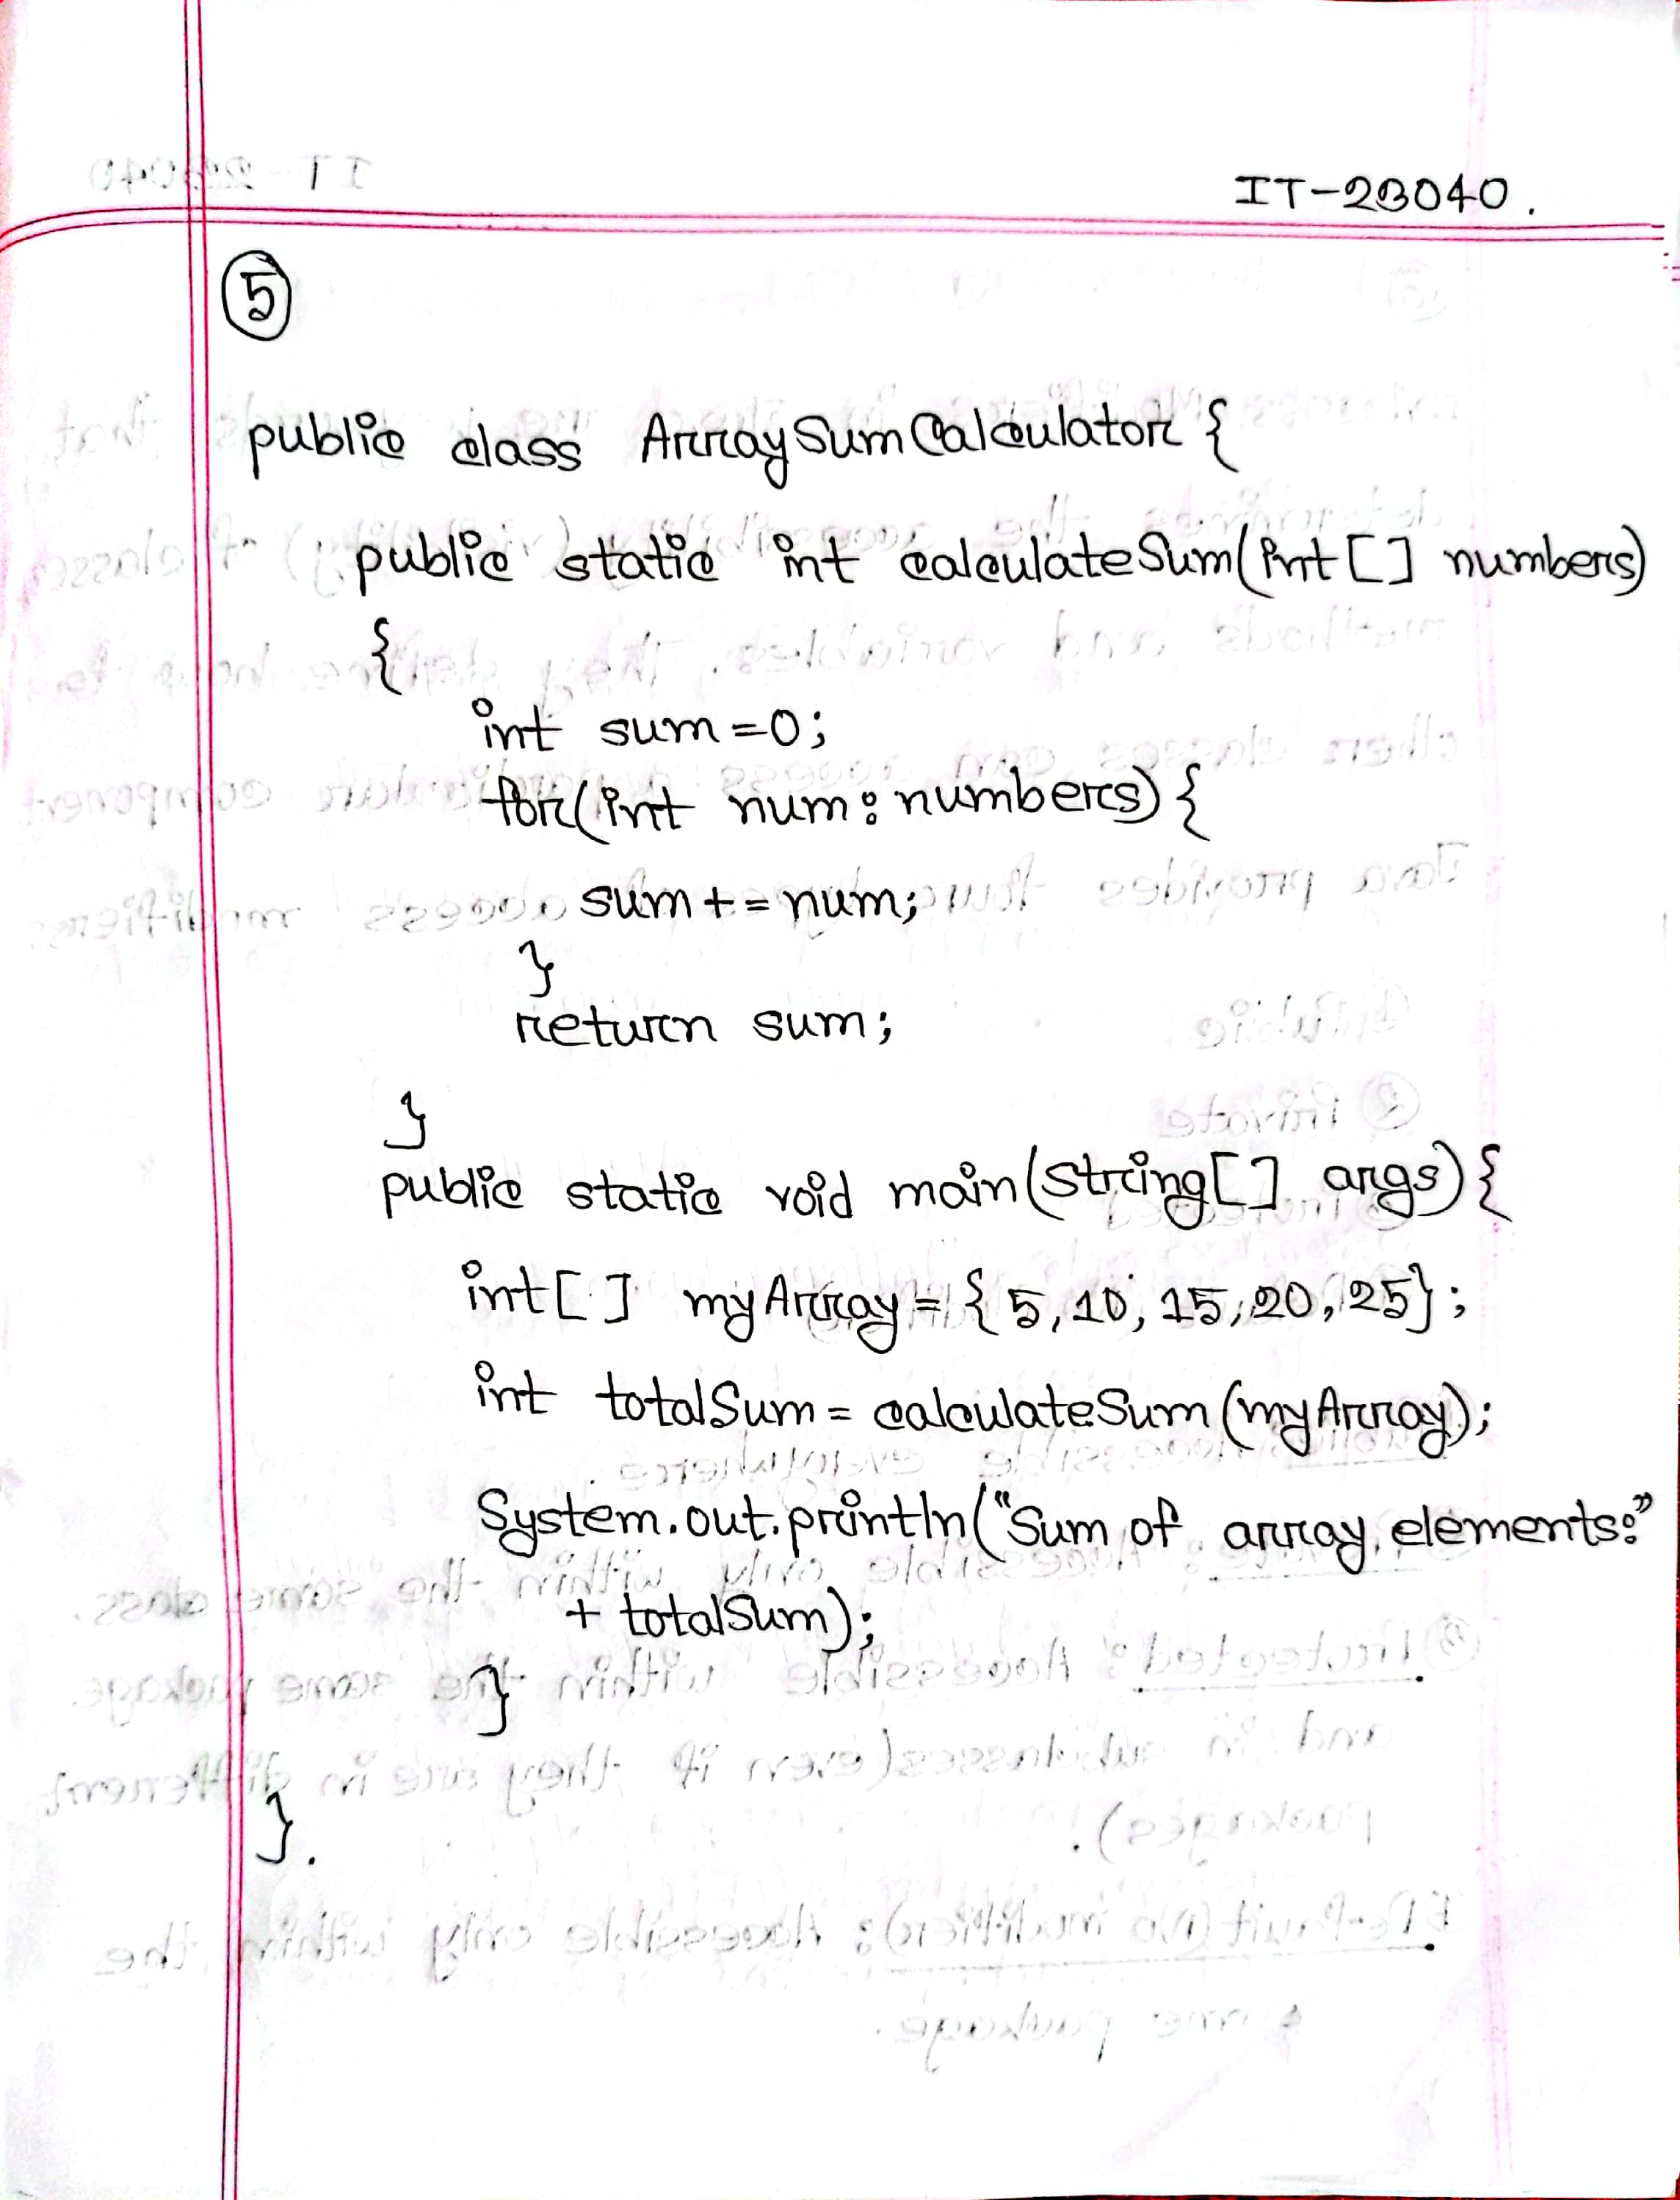 IT-23040.
5
public class ArraySumCalculator {
public static int calculateSum(int[] numbers)
{
int sum=0;
for(int num: numbers) {
sum+=num;
}
return sum;
}
public static void main(string[] args) {
int[] myArray = {5,10,15,20,25};
int totalSum = calculateSum(myArray);
System.out.println("Sum of array elements:"
+ totalSum);
}
}.